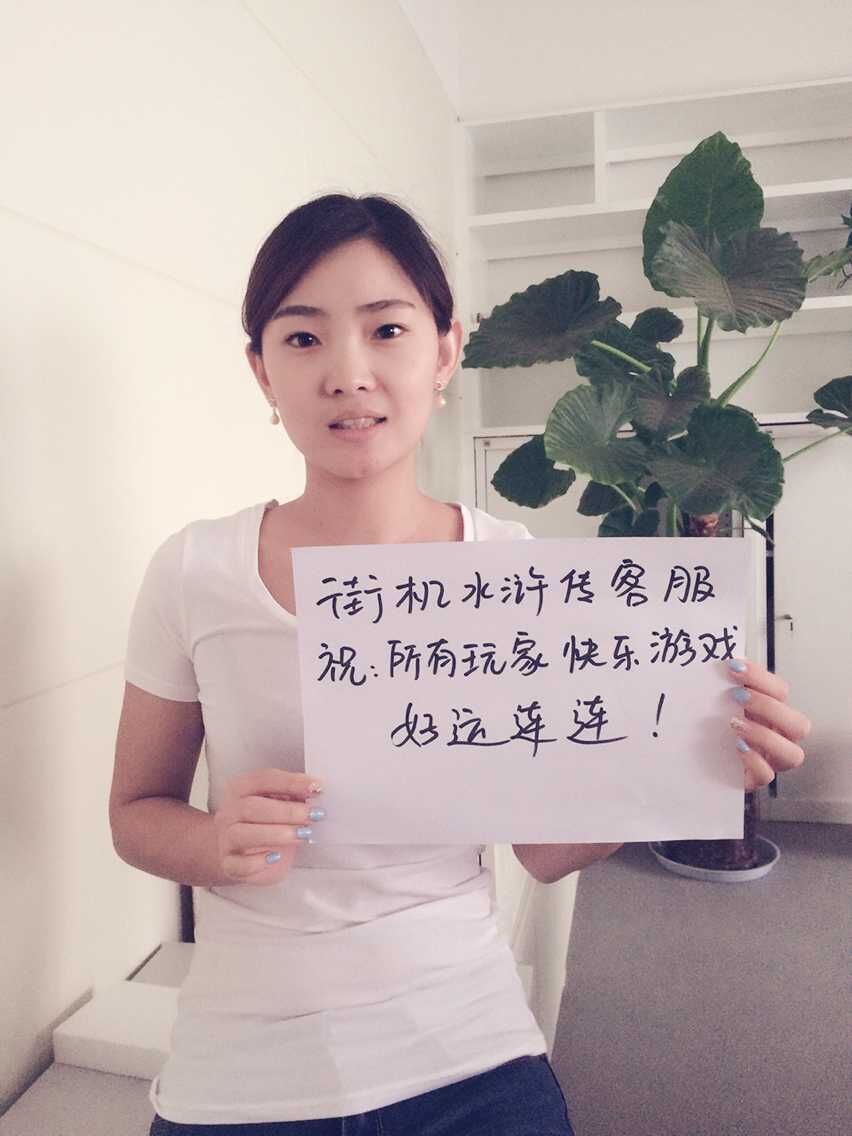 街机水浒传客服
祝:所有玩家快乐游戏
好运连连!